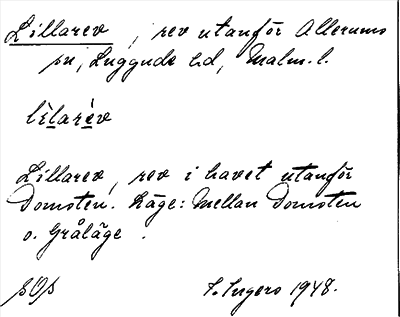 Lillarev, rev utanför Allerums
sn, Luggude hd, Malm. l.
lìlarèv
Lillarev, rev i havet utanför
Domsten. Läge: Mellan Domsten
o. Gråläge.
S. Ingers 1948.